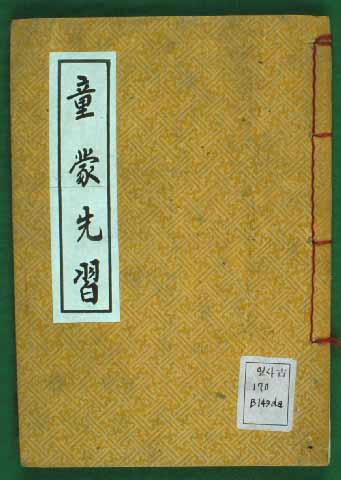 童蒙先習
일사古
170
B149da